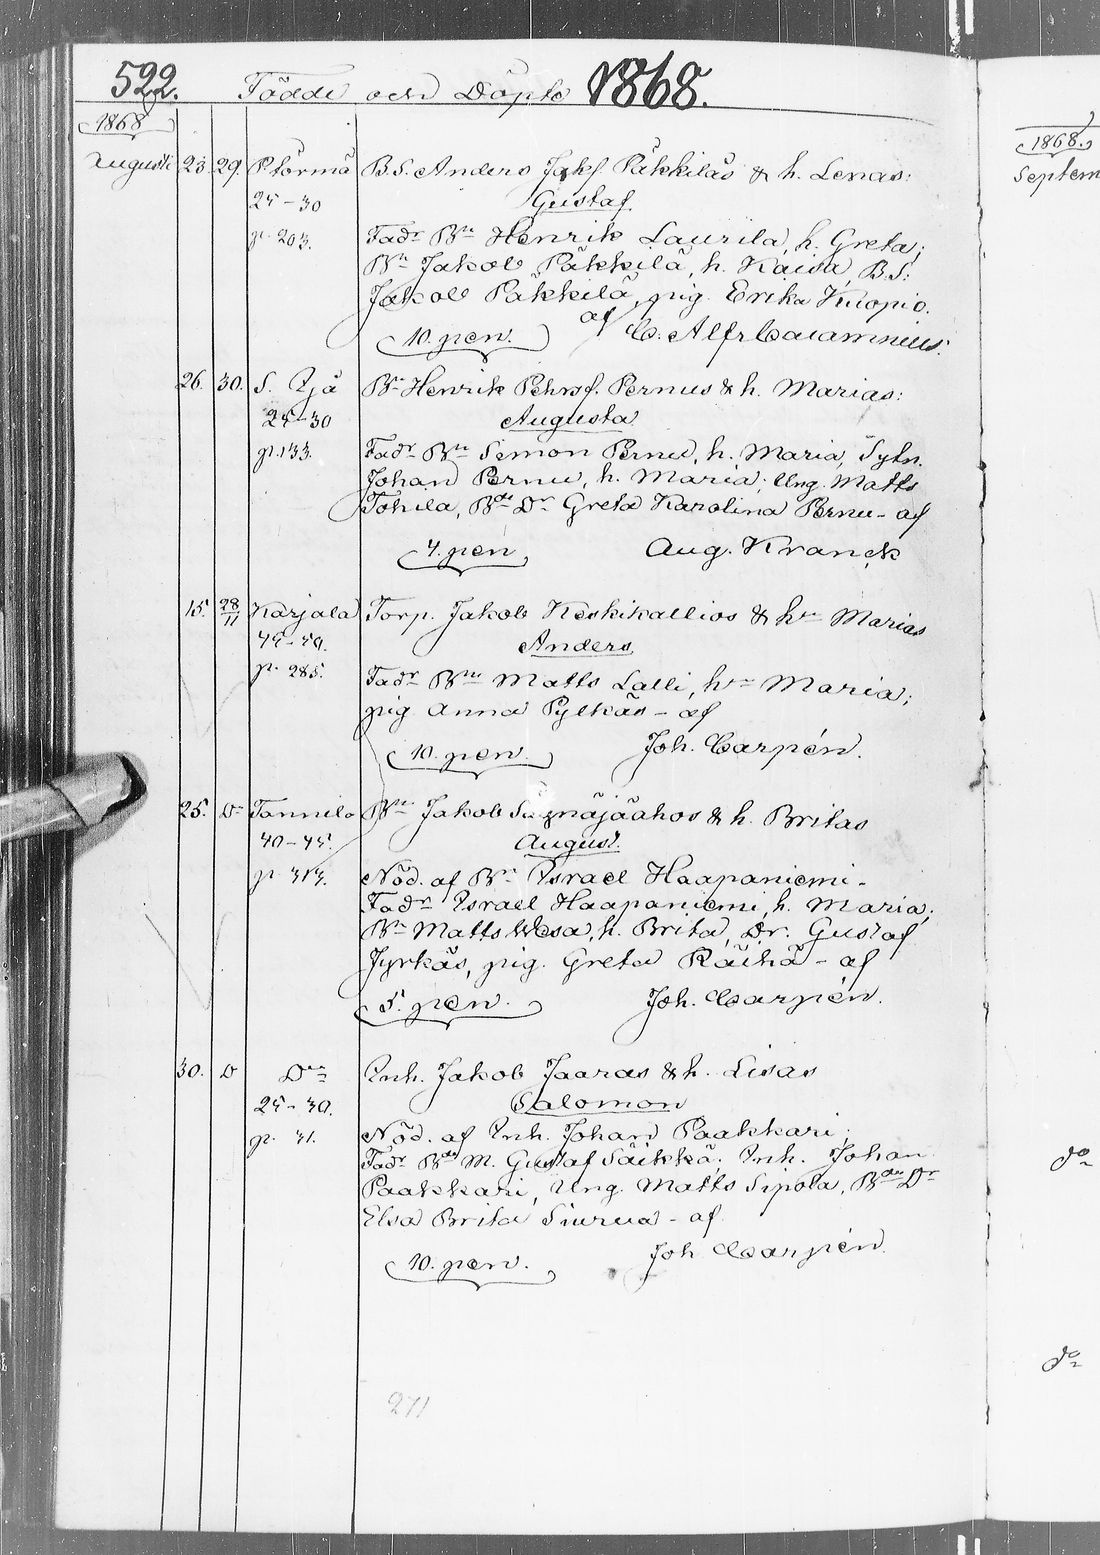 522. Födde och Döpte 1868.
1868
Augusti 23. 29. P törmä B.S. Anders Jakf Päkkiläs & h. Lenas:
25-30 Gustaf.
p. 203. Fadr Bn Henrik Laurila, h. Greta;
Bn Jakob Päkkilä, h. Kaisa, B.S.
Jakob Päkkilä, pig. Erika Kuopio.
10. pen. af C. Alfr Calamnius.
26. 30. S. Ijå Bn Henrik Pehrsf. Pernus & h. Marias:
25-30 Augusta
p. 133. Fadr Bn Simon Pernu, h. Maria, Sytn.
Johan Pernu, h. Maria; Ung. Matts
Tohila, Bde Dr Greta Karolina Pernu - af
4. pen Aug. Kranck
15. 28/11 Karjala Torp. Jakob Keskikallios & hu Marias
Anders
p. 285. Fadr Bn Matts Lalli, hu Maria;
pig Anna Pylkäs - af
10. pen. Joh. Carpén.
25. Do Tannila Bn Jakob & h. Britas
40-45. August.
p. Nöd. af Bn Israel Haapaniemi -
Fadr Israel Haapaniemi, h. Maria;
Bn Matts Wesa, h. Brita, Dr. Gustaf
Jyrkäs, pig. Greta Räihä - af
5. pen. Joh. Carpén.
30. D Do Inh. Jakob Jaaras & h. Lisas
25-30. Salomon
p. 31. Nöd. af Inh. Johan Paakkari;
Fadr Bde M. Gustaf Säikkä; Inh. Johan
Paakkari, Ung. Matts Sipola, Bde Dr
Elsa Brita Siurua - af
10. pen. Joh Carpén.
271
1868.
Septem
do
do